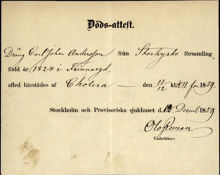 Döds-attest.
Dräng Carl Johan Andersson från Storkyrko församling,
född år 1824 i Finnvargd,
afled härstädes af Cholera den 11/12 kl. f m 1859.
Stockholm och Provisoriska sjukhuset d. 12 Decemb 1859
Underläkare.